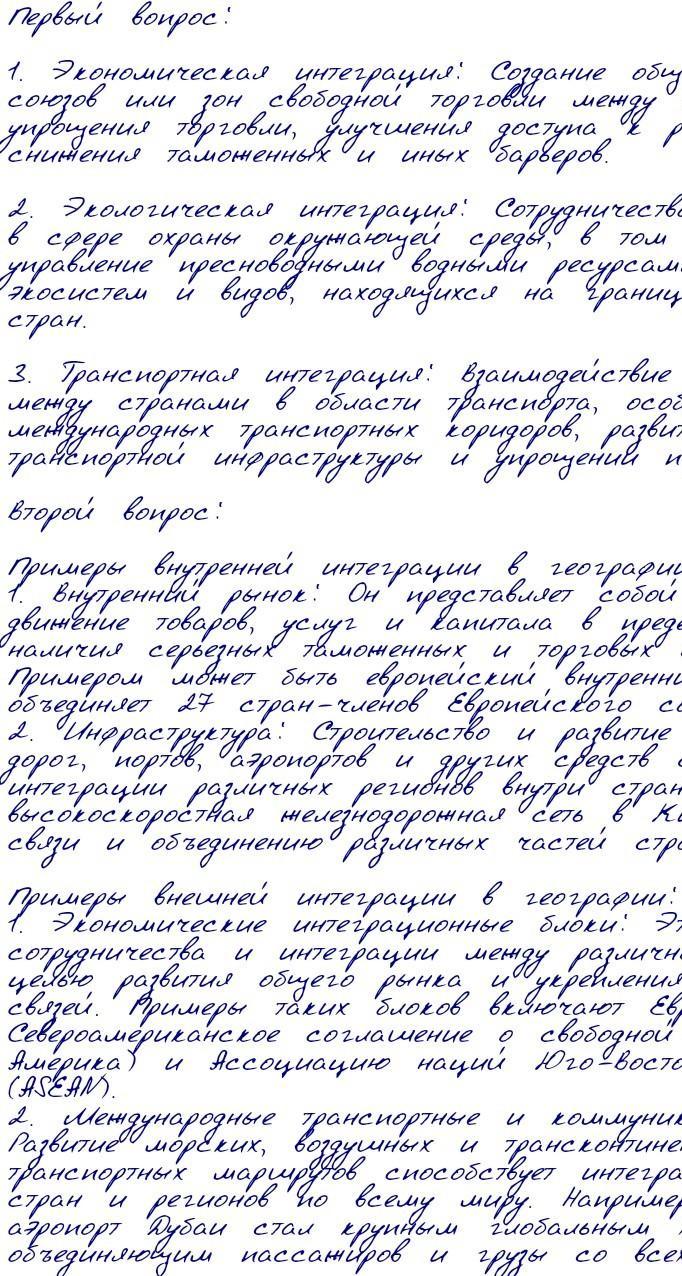 Первый вопрос:
1. Экономическая интеграция: Создание общ
союзов или зон свободной торговли между
упрощения торговли, улучшения доступа к р
снижения таможенных и иных барьеров.
2. Экологическая интеграция: Сотрудничество
в сфере охраны окружающей среды, в том
управление пресноводными водными ресурсами
экосистем и видов, находящихся на границ
стран.
3. Транспортная интеграция: Взаимодействие
между странами в области транспорта, особ
международных транспортных коридоров, развит
транспортной инфраструктуры и упрощении п
Второй вопрос:
Примеры внутренней интеграции в географии
1. Внутренний рынок: Он представляет собой
движение товаров, услуг и капитала в преде
наличия серьезных таможенных и торговых
Примером может быть европейский внутренни
объединяет 27 стран-членов Европейского со
2. Инфраструктура: Строительство и развитие
дорог, портов, аэропортов и других средств с
интеграции различных регионов внутри стран
высокоскоростная железнодорожная сеть в Ки
связи и объединению различных частей стра
Примеры внешней интеграции в географии:
1. Экономические интеграционные блоки: Эт
сотрудничества и интеграции между различн
целью развития общего рынка и укрепления
связей. Примеры таких блоков включают Евр
Североамериканское соглашение о свободной
Америка) и Ассоциацию наций Юго-Восто
(ASEAN).
2. Международные транспортные и коммуник
Развитие морских, воздушных и трансконтинен
транспортных маршрутов способствует интегра
стран и регионов по всему миру. Например
аэропорт Дубаи стал крупным глобальным
объединяющим пассажиров и грузы со всех